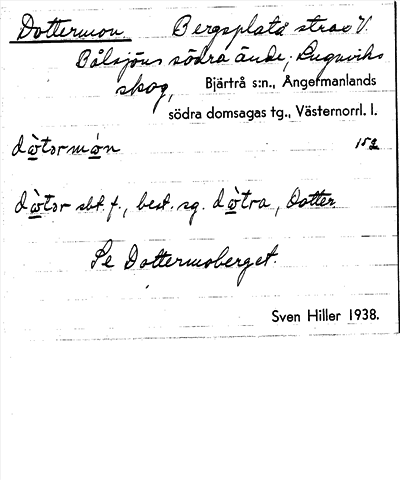 Dottermon. Bergsplatå strax V.
Bålsjöns södra ände; Lugnviks
skog, Bjärtrå s:n., Ångermanlands
södra domsagas tg., Västernorrl. l.
dòtərmón 152
dòtər sbt. f., best. sg. dòtra, dotter
Se Dottermoberget.
Sven Hiller 1938.